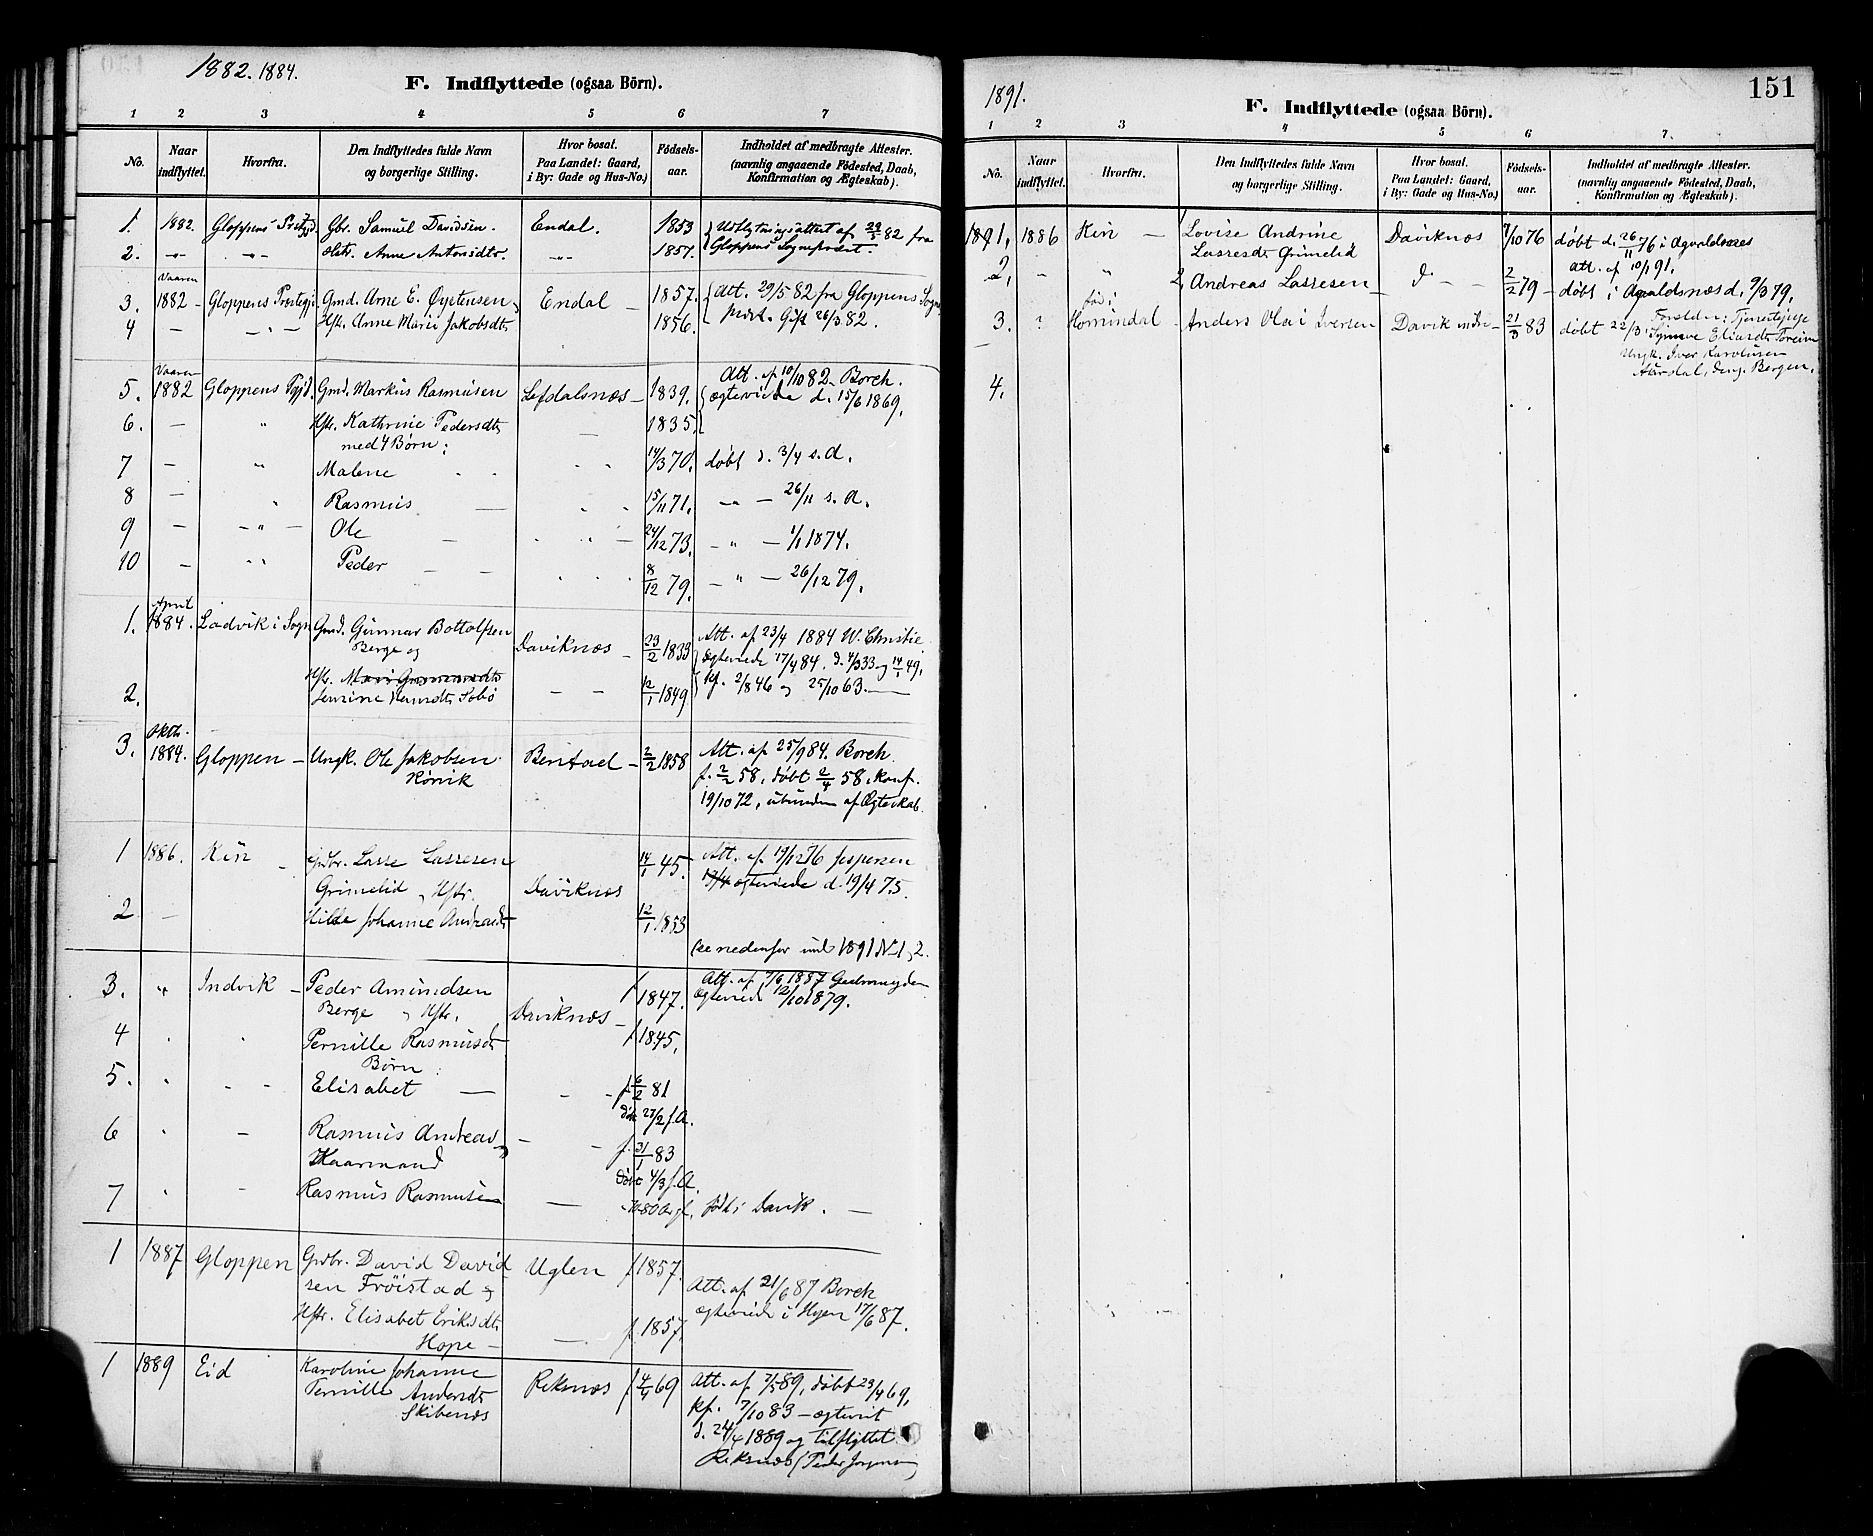 1882. 1884.
F. Indflyttede (ogsaa Börn).
1 2 3 4 5 6 7
No. Naar indflyttet. Hvorfra. Den Indflyttedes fulde Navn og borgerlige Stilling. Hvor bosat. Paa Landet: Gaard, i By: Gade og Hus-No.) Födsels-aar. Indholdet af medbragte Attester. (navnlig angaaende Födested, Daab, Konfirmation og Ægteskab).
1. 1882. Gloppens Gbr. Samuel Davidsen. Endal. 1853 Udflytningsattest af 82 fra
2. Hstr. Anne Antonsdtr. 1857. Gloppens Sognepræst.
Vaaren
3. 1882 – Gloppens Gmd. Arne E. Øystensen, Endal – 1857. Att. 29/5 82 fra Gloppens Sogne
4 – Hstr. Anne Marie Jakobsdtr 1856. præst. Gift 26/3 82.
Vaaren
5. 1882 Gloppens Pgjd. Gmd. Markus Rasmusen Lefdalsnæs – 1839. Att. af 10/10 82 Borch.
ægteviede d. 15/6 1869.
6. – " Hstr. Kathrine Pedersdtr – 1835.
med 4 Børn:
7 – " Malene 14/3 70. døbt d. 3/4 s. d.
8 – " Rasmus 15/11 71. – 26/11 s. A.
9 – " Ole 24/12 73. – " – 1/1 1874.
10 – Peder 8/12 79. – " – 26/12 79.
April
1. 1884. Ladvik i Sogn Gmd. Gunnar Bottolfsen Daviknæs – 23/2 1833 Att. af 23/4 1884 W. Christie
Berge og ægteviede 17/4 84. d. 4/3 33 og 14/1 49,
2. Hstr. – – 12/1 1849 kf. 2/8 46 og 25/10 63.
Okth.
3. 1884. Gloppen – Ungk. Ole Jakobsen Benstad – 2/2 1858 Att. af 25/9 84. Borch
Rønvik f. 2/2 58, døbt 2/4 58, konf.
19/10 72, ubunden af Ægteskab.
1 1886. Kin – Gdbr. Lasse Lassesen 14/1 45. Att. af 19/12 76 Jespersen
Grimelid, Hstr. Daviknæs ægteviede d. 19/4 75.
2 – Hilde Johanne Andreasdtr 12/1 1853
(se nedenfor und 1891 No 1, 2.
3. " Indvik – Peder Amundsen 1847. Att. af 7/6 1887
Berge, Hstr. Daviknæs – ægteviede 12/10 1879.
4 Pernille Rasmusdtr 1845.
Børn:
5. Elisabet – f. 6/2 81
døbt 27/2 s. A.
6 – Rasmus Andreas, f. 31/1 83
døbt 4/3 s. A.
7 Rasmus Rasmusen – født i Davik. –
1 1887 Gloppen Grdbr. David David- Uglen f. 1857. Att. af 21/6 87 Borch
sen Frøistad og ægteviede i Hyen 17/6 87.
Hstr. Elisabet Eriksdtr – f. 1857.
Hope –
1 1889 Eid Karoline Johanne Reksnæs f. 4/4 69 Att. af 7/5 89, døbt 23/4 69,
Pernille Andersdtr kf. 7/10 83 – ægteviet
Skibenæs d. 24/4 1889 og tilflyttet
Reksnæs (Peder
151
1891.
F. Indflyttede (ogsaa Börn).
1 2 3 4 5 6 7.
No. Naar indflyttet. Hvorfra. Den Indflyttedes fulde Navn og borgerlige Stilling. Hvor bosat. Paa Landet: Gaard, i By: Gade og Hus-No.) Födsels-aar. Indholdet af medbragte Attester. (navnlig angaaende Födested, Daab, Konfirmation og Ægteskab).
1891, 1886 Kin – 1, Lovise Andrine Daviknæs 7/10 76 døbt d. 26/11 76 i Agvaldsnes
Lassesdtr Grimelid att. af 10/1 91.
2, " 2, Andreas Lassesen – d – – 2/2 79 – døbt i Agvaldsnæs d. 9/3 79.
født i
3. Hornindal Anders Olai Iversen Davik indre – 21/3 83 Forældre: Tjenestepige
døbt 22/3 Synneve Eliasdtr
Ungk. Iver Karolusen
Aarsdal, Bergen.
4.